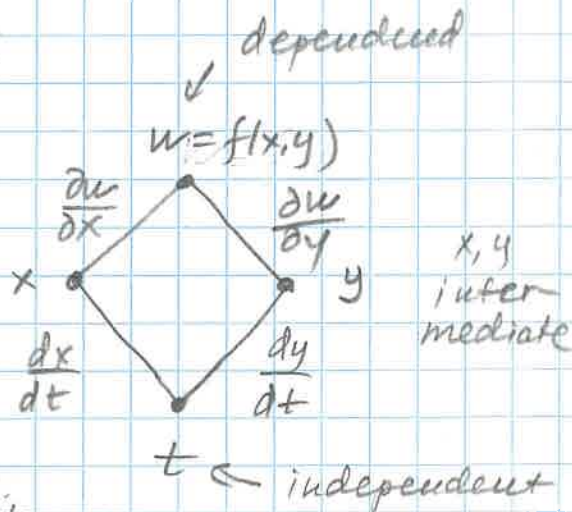 dependend
w=f(x,y)
∂w/∂x
∂w/∂y
x
y
x, y
inter-
mediate
dx/dt
dy/dt
t
independent